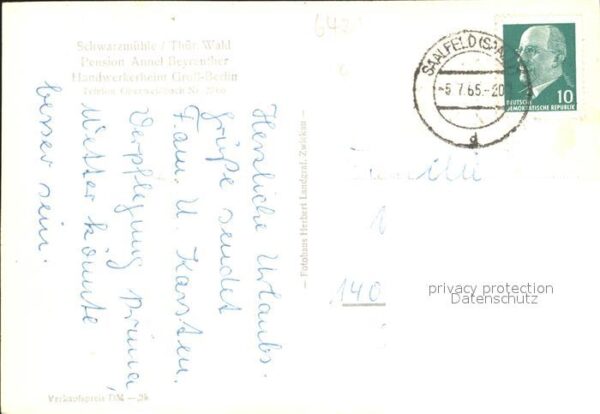 Schwarzmühle / Thür. Wald
Pension Annel Beyreuther
Handwerkerheim Groß-Berlin
Telefon Oberweißbach Nr.
Herzliche Urlaubs-
grüße sendet
Fam. U. Karsten.
Verpflegung prima,
Wetter könnte
besser sein.
Verkaufspreis DM
— Fotohaus Herbert Landgraf, Zwickau —
SAALFELD (SAALE)
-5.7.65.-20
d
DEUTSCHE
DEMOKRATISCHE REPUBLIK
10
140
privacy protection
Datenschutz